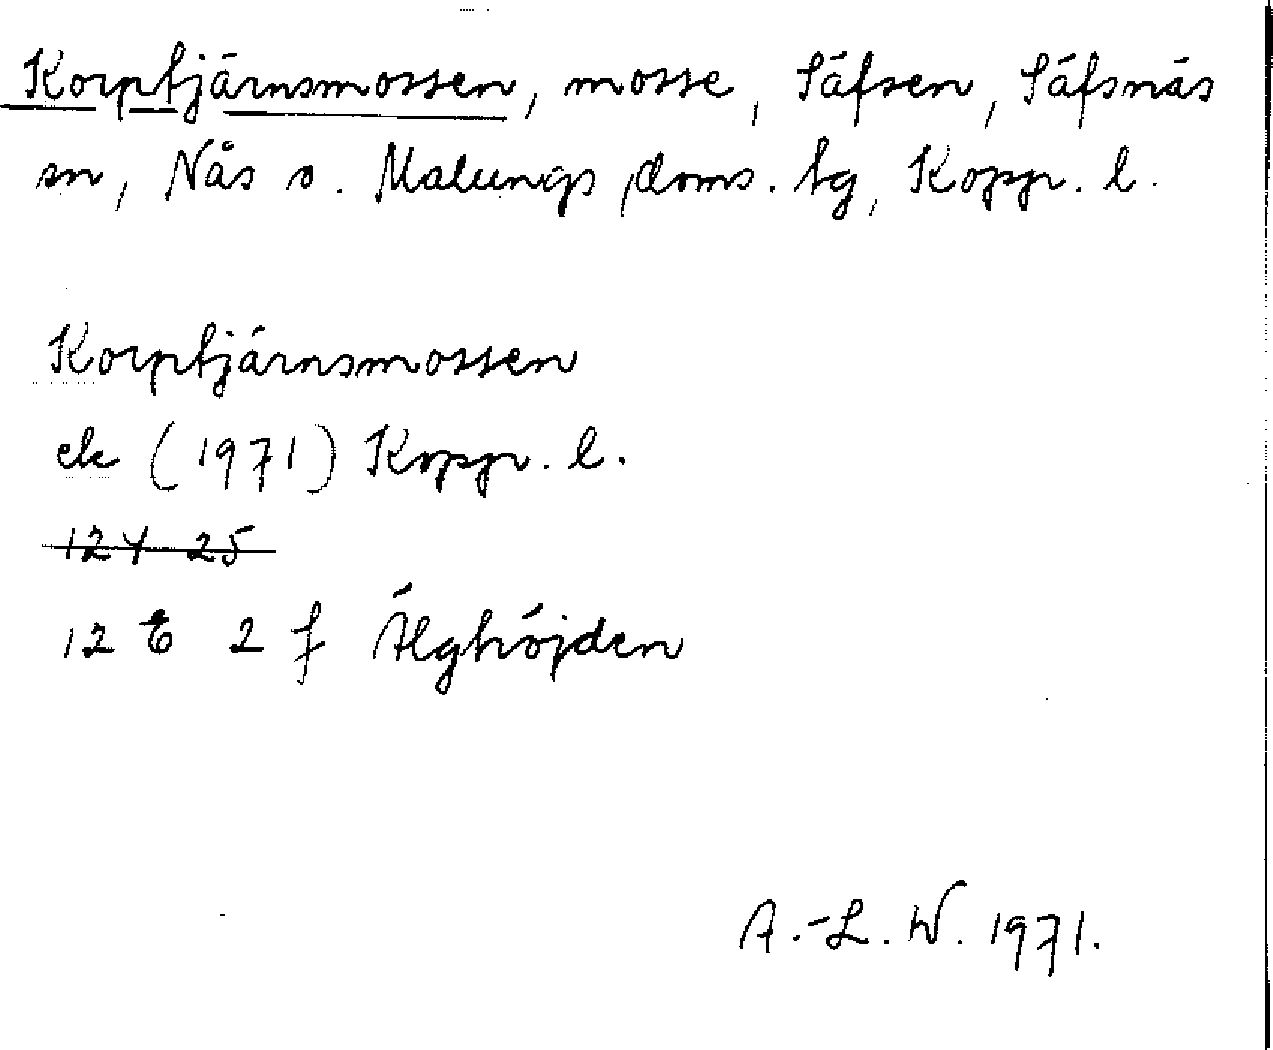 Korptjärnsmossen, mosse, Säfsen, Säfsnäs
sn, Nås o. Malungs doms. tg, Koppr. l.
Korptjärnsmossen
ek (1971) Koppr. l.
12 Y 25
12 E 2 f Älghöjden
A.-L. W. 1971.